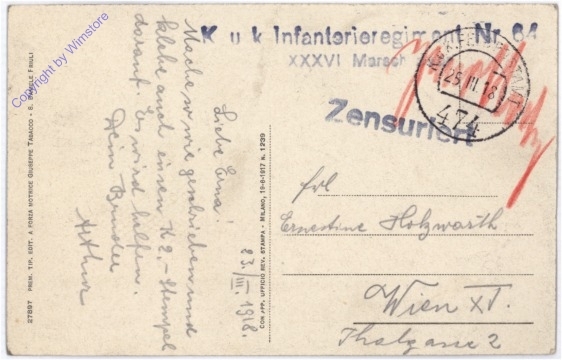 K u k Infanterieregiment Nr. 64
XXXVI Marsch
K.u.K. FELDPOSTAMT
25.III.18
474
Zensuriert
Liebe Erna!
Mache so wie geschrieben und
klebe auch einen K 2.-Stempel
darauf. Es wird helfen.
Dein Bruder
Arthur
23./III. 1918.
Frl
Ernestine Holzwarth
Wien XI.
Thalgasse 2
27897 PREM. TIP. EDIT. A FORZA MOTRICE GIUSEPPE TABACCO - S. DANIELE FRIULI
CON APP. UFFICIO REV. STAMPA - MILANO, 18-6-1917 N. 1239
Copyright by Winstore